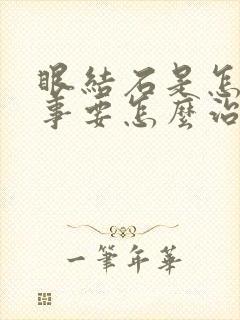 眼結石是怎
事要怎麼治
一筆年華